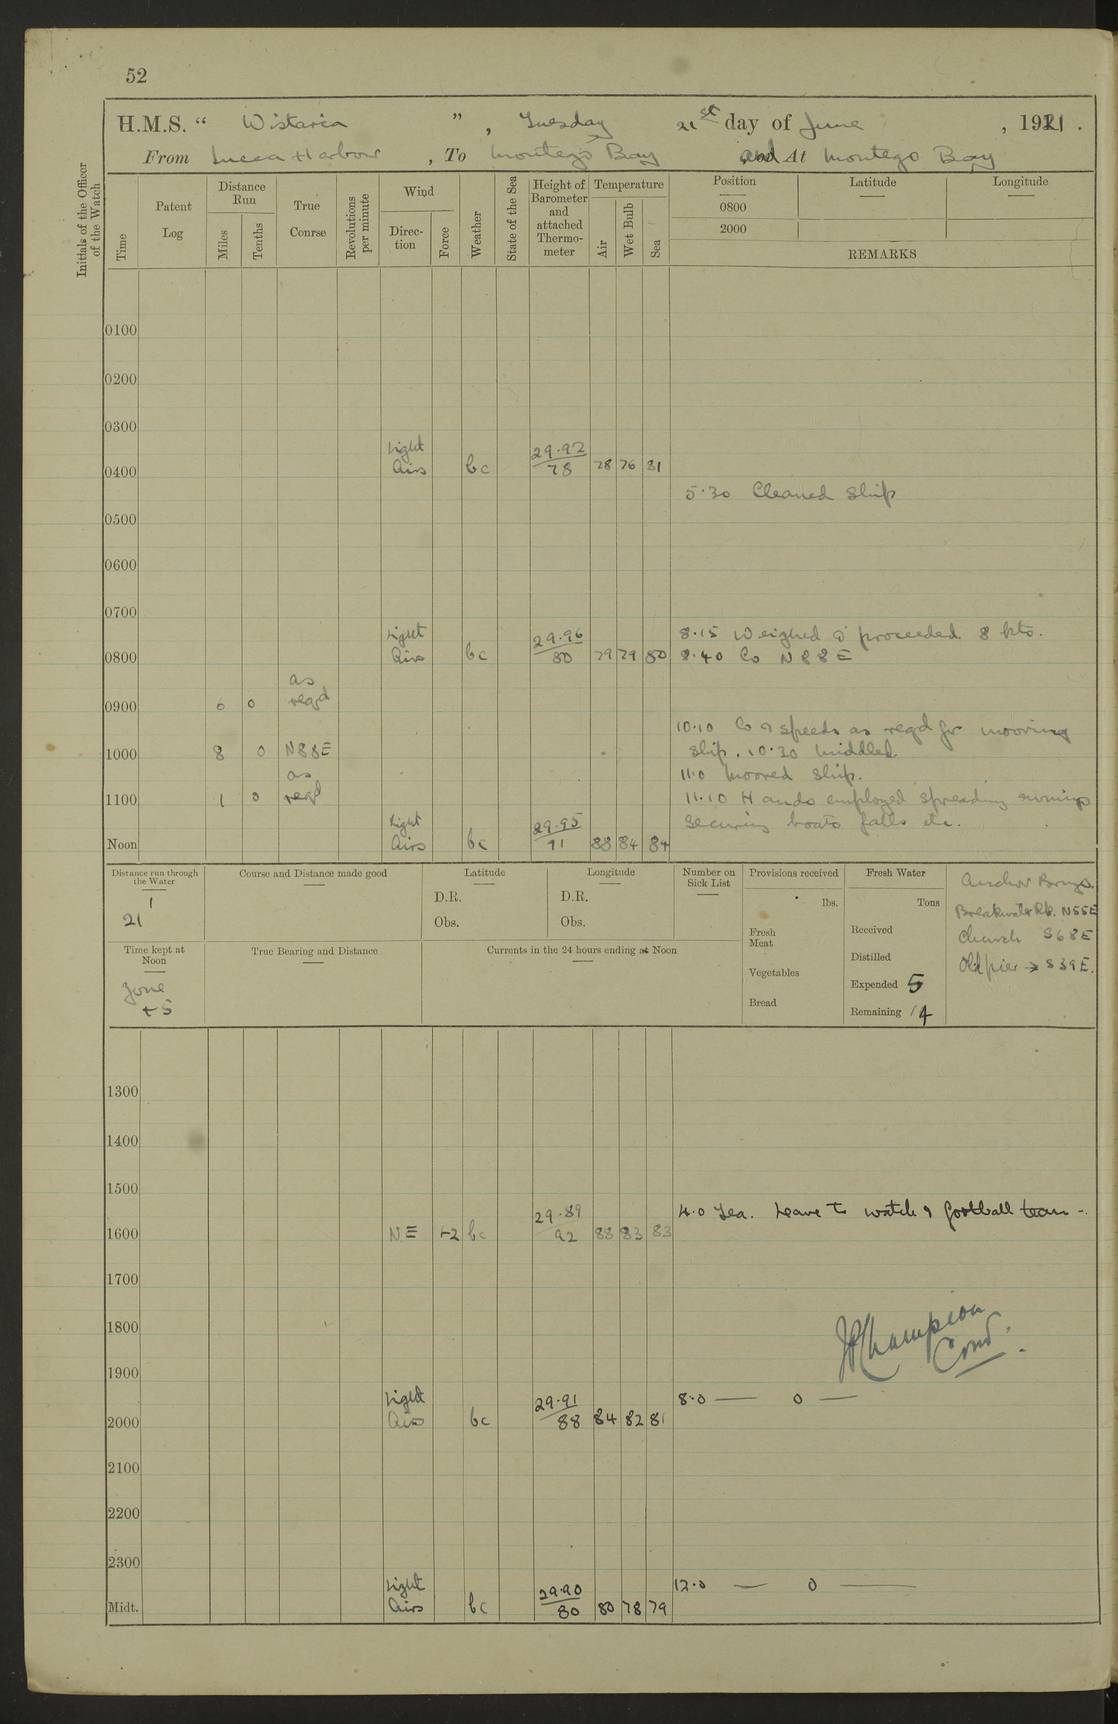 52
H.M.S. “ Wistaria ” , Tuesday 21st day of June , 1921 .
From Lucea Harbour , To Montego Bay and At Montego Bay
Initials of the Officer of the Watch
Time
Patent Log
Distance Run
Miles
Tenths
True Course
Revolutions per minute
Wind
Direc-tion
Force
Weather
State of the Sea
Height of Barometer and attached Thermo-meter
Temperature
Air
Wet Bulb
Sea
Position Latitude Longitude
0800
2000
REMARKS
0100
0200
0300
0400 Light Airs bc 29.92 78 78 76 81
5.30 Cleaned Ship
0500
0600
0700
8.15 Weighed & proceeded. 8 kts.
0800 Light Airs bc 29.96 80 79 79 80 8.40 Co N88E
0900 6 0 as reqd
10.10 Co & speeds as reqd for mooring
1000 8 0 N88E ship. 10.30 middled
11.0 moored ship.
1100 1 0 as reqd 11.10 Hands employed spreading awnings
securing boats falls etc.
Noon Light Airs bc 29.95 91 88 84 84
Distance run through the Water
21
Course and Distance made good
Latitude
D.R.
Obs.
Longitude
D.R.
Obs.
Number on Sick List
Provisions received
lbs.
Fresh Meat
Vegetables
Bread
Fresh Water
Tons
Received
Distilled
Expended 5
Remaining 14
Anchor Brngs
Breakwater Rk. N55E
Church S68E
Old pier → S39E.
Time kept at Noon
Zone +5
True Bearing and Distance
Currents in the 24 hours ending at Noon
1300
1400
1500
4.0 Tea. Leave to watch & football team -.
1600 NE 1-2 bc 29.89 92 88 83 83
1700
1800
JPChampion
Comd.
1900
8.0 — 0 —
2000 Light Airs bc 29.91 88 84 82 81
2100
2200
2300
12.0 — 0 —
Midt. Light Airs bc 29.90 80 80 78 79